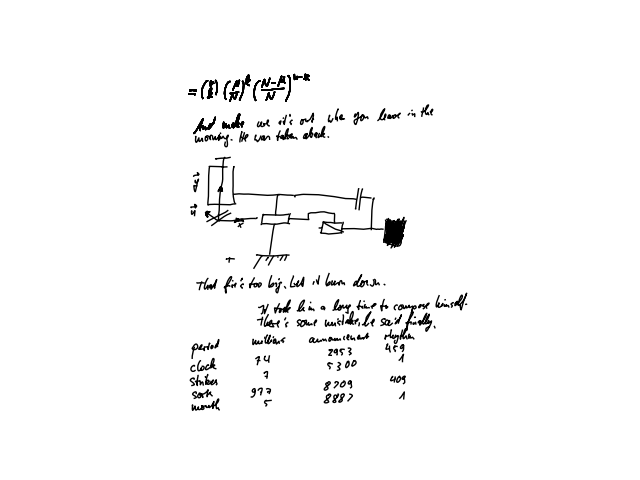 = (n k) (μ/N)^k ((N-μ)/N)^n-k
And make sure it's out when you leave in the
morning. He was taken aback.
y
u
x
+
That fire's too big, let it burn down.
It took him a long time to compose himself.
There's some mistake, he said finally.
period millions announcement rhythm
clock 74 2953 459
strikes 7 5300 1
sack 977 8709 409
mouth 5 8887 1